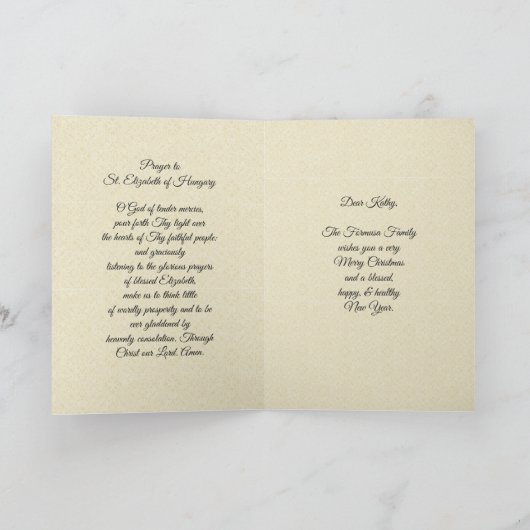 Prayer to
St. Elizabeth of Hungary
O God of tender mercies,
pour forth Thy light over
the hearts of Thy faithful people;
and graciously
listening to the glorious prayers
of blessed Elizabeth,
make us to think little
of wordly prosperity and to be
ever gladdened by
heavenly consolation. Through
Christ our Lord. Amen.
Dear Kathy,
The Formusa Family
wishes you a very
Merry Christmas
and a blessed,
happy, & healthy
New Year.